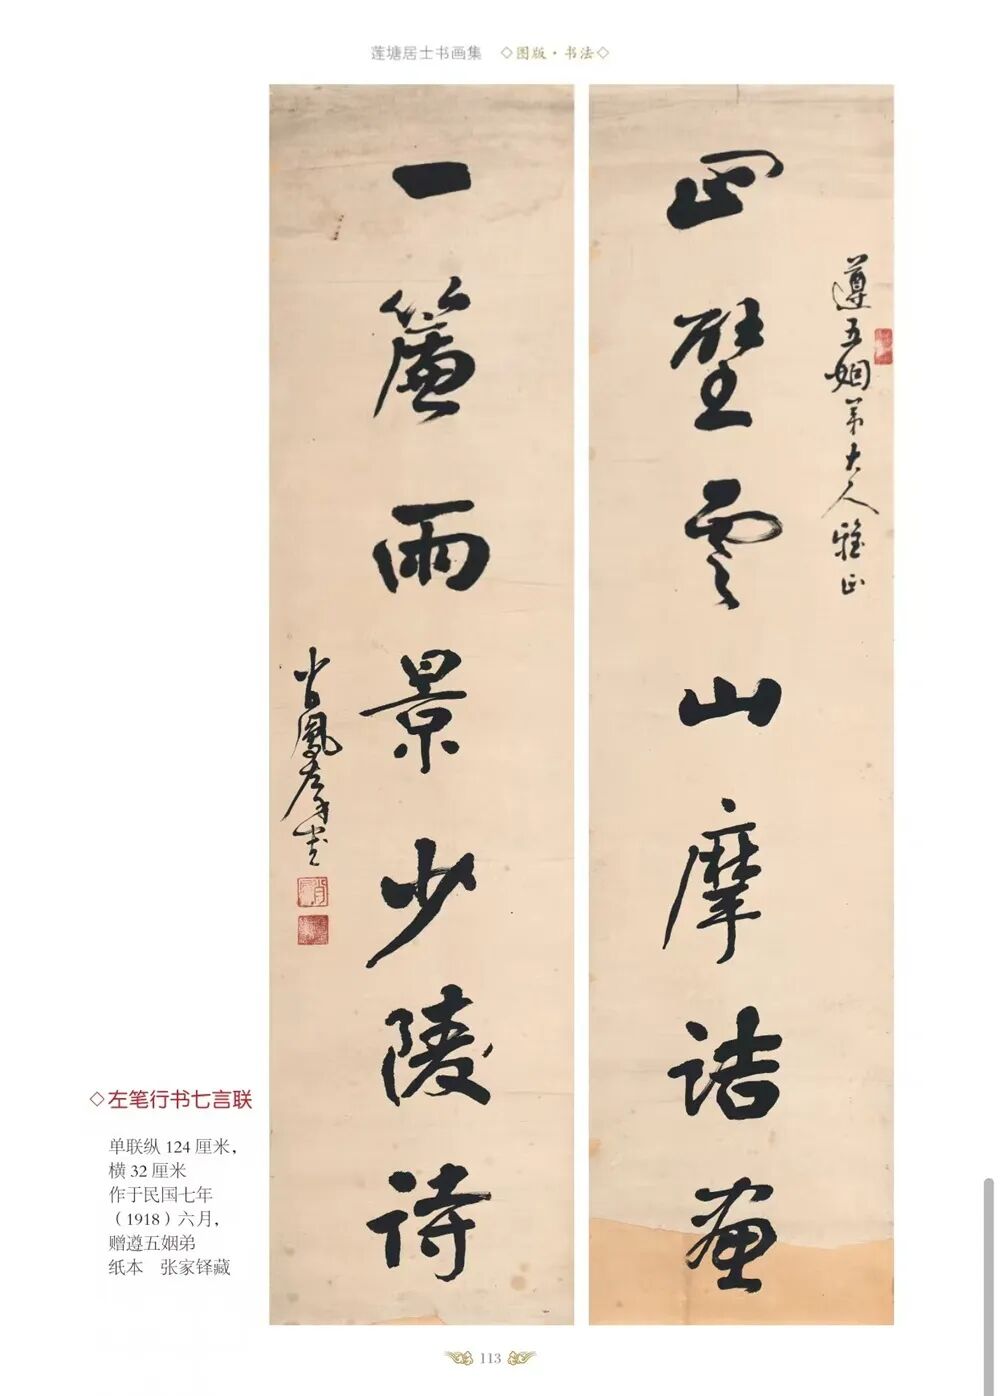 莲塘居士书画集 ◇图版·书法◇
遵五姻弟大人雅正
四壁云山摩诘画
一簾雨景少陵诗
肖凤左笔
◇左笔行书七言联
单联纵 124 厘米，
横 32 厘米
作于民国七年
（1918）六月，
赠遵五姻弟
纸本 张家铎藏
113